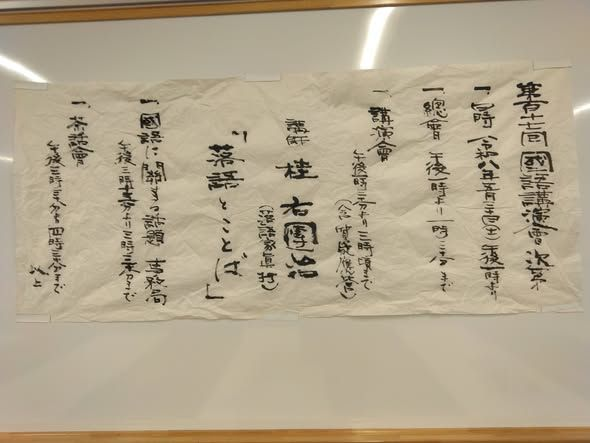 第百十七回 國語講演會 次第
一、日時 令和八年五月 (土) 午後一時より
一、總會 午後一時より一時二十分まで
一、講演會
午後一時三十分より三時頃まで
(含 質疑應答)
講師 桂 右團治
(落語家眞打)
「落語とことば」
一、國語に關する話題 事務局
午後三時十分より三時三十分まで
一、茶話會
午後三時三十分より四時三十分まで
以上